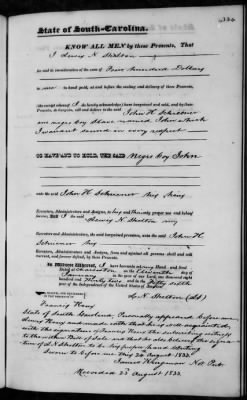 State of South-Carolina.
KNOW ALL MEN by these Presents, That
I Lewis N Shelton
for and in consideration of the sum of Four hundred Dollars
to me in hand paid, at and before the sealing and delivery of these Presents,
the receipt whereof I do hereby acknowledge) have bargained and sold, and by these
Presents, do bargain, sell and deliver to the said John H. Schreiner
one negro Boy Slave named John which
I warrant sound in every respect
TO HAVE AND TO HOLD, THE SAID Negro Boy John
unto the said John H. Schreiner his heirs
Executors, Administrators and Assigns, to his and their only proper use and behoof
forever. And I the said Lewis N Shelton my
Executors and Administrators, the said bargained premises, unto the said John H.
Schreiner his
Executors, Administrators and Assigns, from and against all persons shall and will
warrant, and forever defend, by these Presents.
In Witness Whereof, I have hereunto set my Hand and Seal
Dated at Charleston on the Eleventh day of
January in the year of our Lord one thousand eight
hundred and Thirty two and in the Fifty sixth
year of the Independence of the United States of America.
SIGNED, SEALED, AND DELIVERED
IN THE PRESENCE OF
L. N. Shelton (LS)
Francis Henry
State of South Carolina, Personally appeared before me
Henry and made oath that he is well acquainted
with the signature of Francis Henry the subscribing witness
to the within Bill of Sale and that he also believes the signa-
ture of L. N. Shelton to be his proper hand writing
Sworn to before me this 24 August 1832.
James Kingman Not. Pub.
Recorded 25 August 1832.